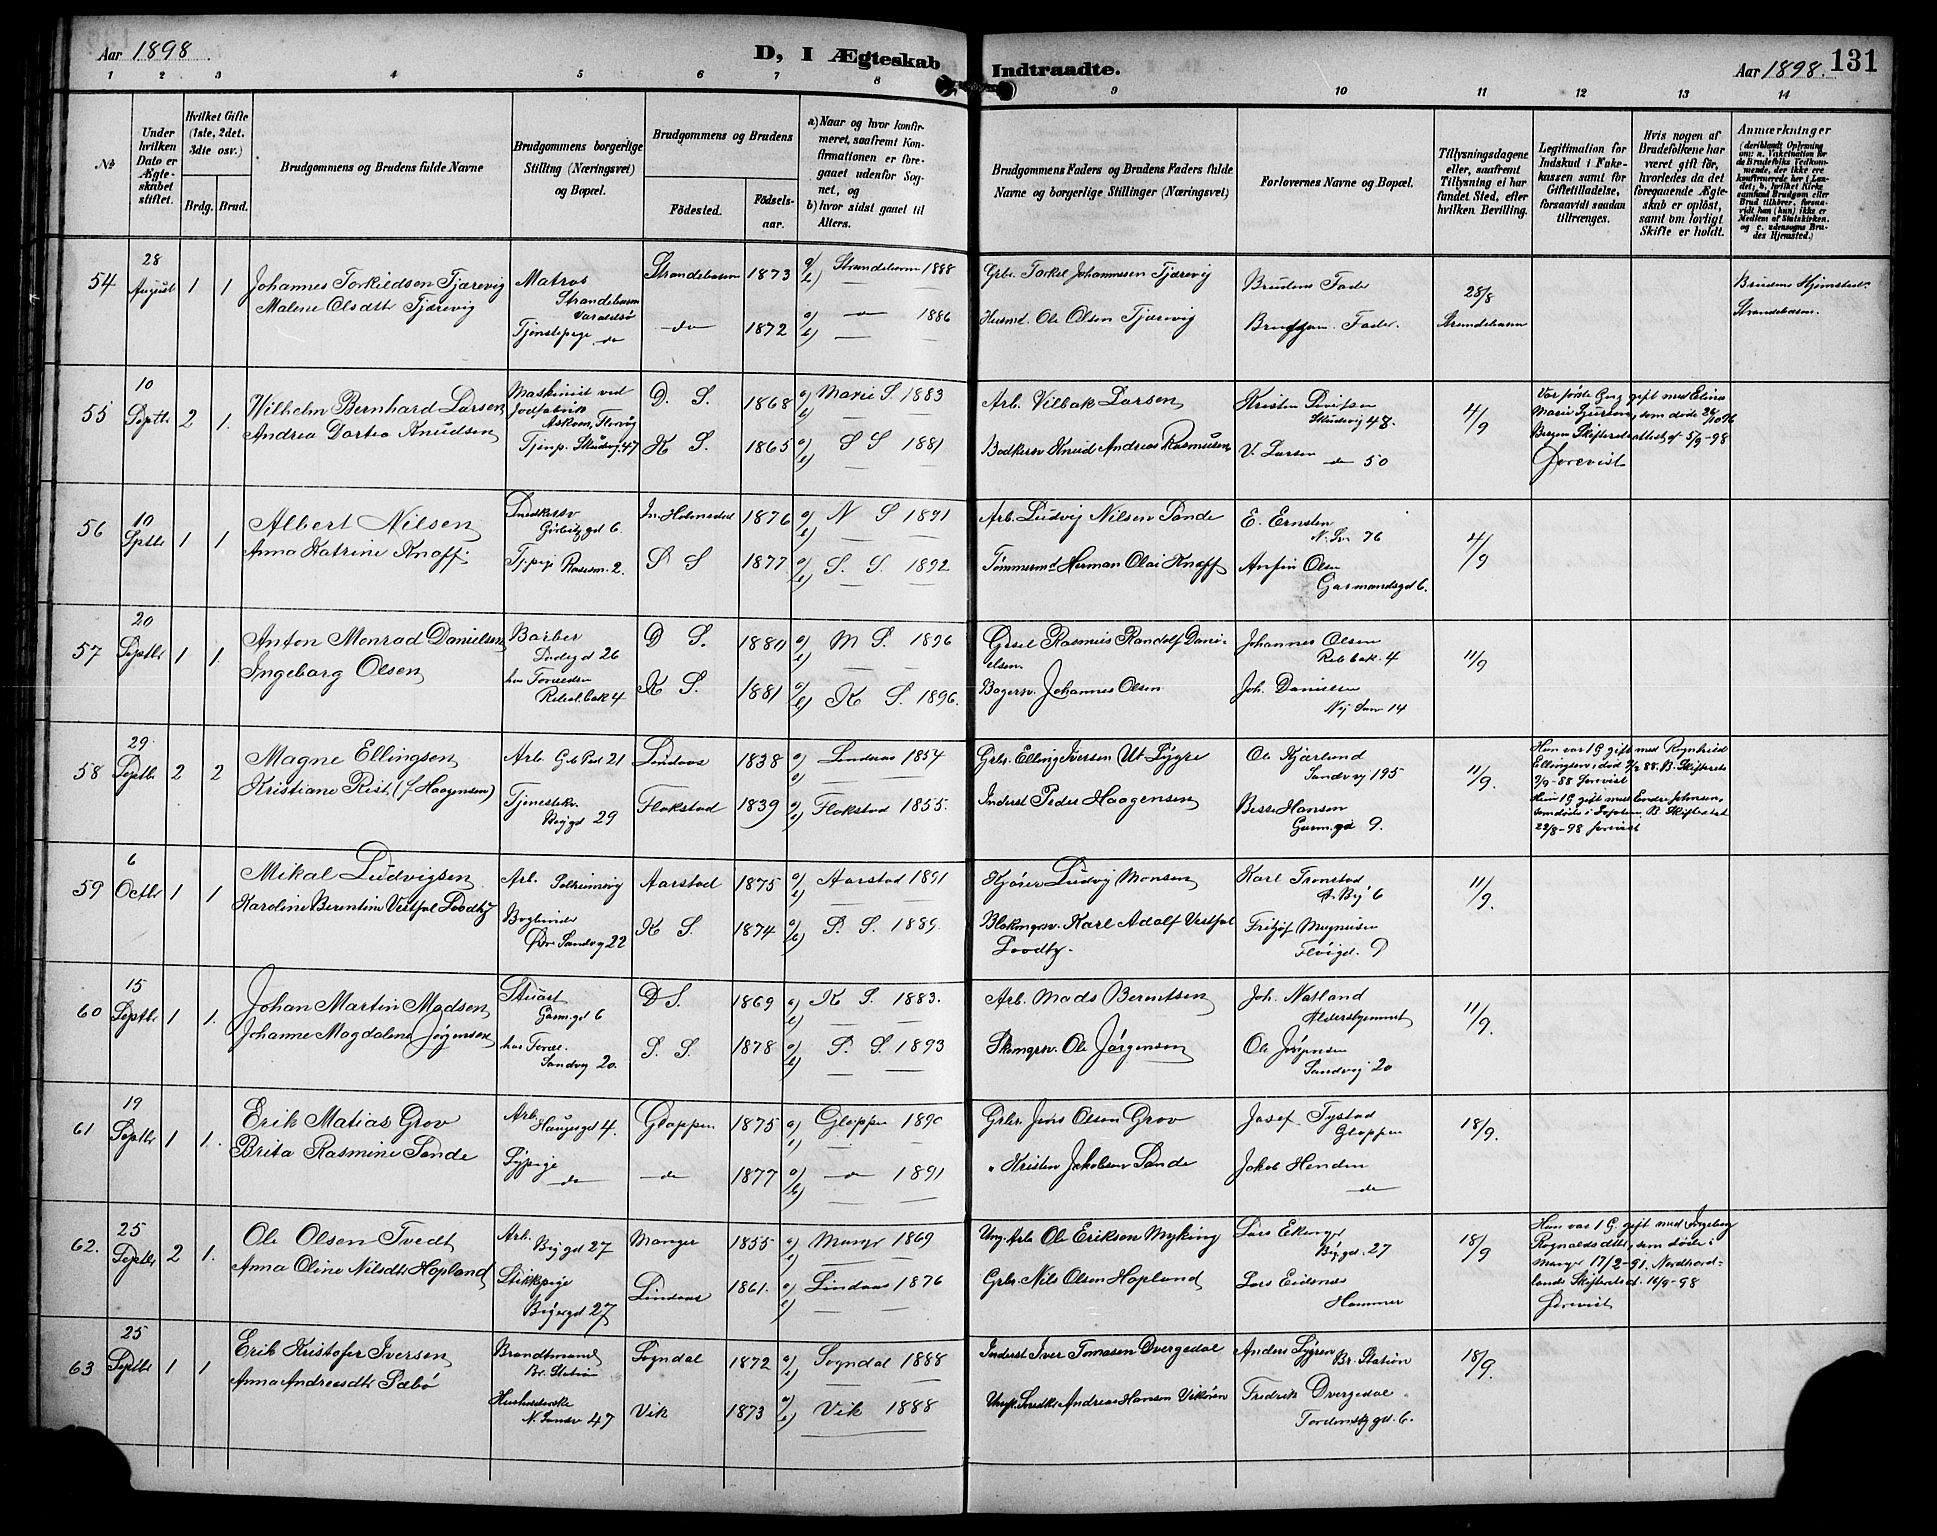 Aar 1898
D, I Ægteskab
Indtraadte.
Aar 1898. 131
1 2 3 4 5 6 7 8 9 10 11 12 13 14
№
Under hvilken Dato er Ægteskabet stiftet.
Hvilket Gifte (1ste, 2det, 3die osv.)
Brdg. Brud.
Brudgommens og Brudens fulde Navne
Brudgommens borgerlige Stilling (Næringsvei) og Bopæl.
Brudgommens og Brudens
Fødested. Fødselsaar.
a) Naar og hvor konfirmeret, saafremt Konfirmationen er foregaaet udenfor Sognet, og
b) hvor sidst gaaet til Alters.
Brudgommens Faders og Brudens Faders fulde Navne og borgerlige Stillinger (Næringsvei)
Forlovernes Navne og Bopæl.
Tillysningsdagene eller, saafremt Tillysning ei har fundet Sted, efter hvilken Bevilling.
Legitimation for Indskud i Enkekassen samt for Giftetilladelse, forsaavidt saadan tiltrænges.
Hvis nogen af Brudefolkene har været gift før, hvorledes da det foregaaende Ægteskab er opløst, samt om lovligt Skifte er holdt.
Anmærkninger
54 28 August 1 1
Johannes Torkildsen Tjærevig
Malene Olsdtr Tjærevig
Matros Strandebarm Varaldsø
Tjenstepige do
Strandebarm 1873 a) Strandebarm 1888
do 1872 a) do 1886
Grbr. Torkel Johannesen Tjærevig
Husmd. Ole Olsen Tjærevig
Brudens Fader
Brudgom. Fader.
28/8 Strandebarm
Brudens Hjemsted: Strandebarm.
55 10 Septbr 2 1.
Wilhelm Bernhard Larsen
Andrea Dortea Knudsen
Maskinist ved Jodfabrik Askøen, Florvåg
Tjenp. Skudevig. 47
D. S. 1868 a) Marie S. 1883
K S. 1865 a) S S 1881
Arb. Vilbak Larsen
Bødkersv Knud Andreas Rasmusen
Kristen Davidsen Skudevig 48.
V. Larsen do 50
4/9
Var første Gang gift med Elina Marie Sjursen, som døde 26/10 96
Bergen Skifteretsattest af 5/9-98
Forevist
56 10 Sptbr 1 1
Albert Nilsen
Anna Katrine Knoff.
Snedkersv
Tj.pige Rosesm. 2.
In. Holmedal 1876 a) N S 1891
S S 1877 a) S. S. 1892
Arb. Ludvig Nilsen Sande
Tømmermd Herman Olai Knoff
E. Ernsten N. Sv 76
Anfin Olsen Garmandsgd 6.
4/9
57 20 Septbr 1 1.
Anton Monrad Danielsen
Ingeborg Olsen
Barber 26
hos Forældre 4
D S. 1880 a) M S. 1896
K S. 1881 a) K S. 1896.
Rasmus Randolf Danielsen.
Bagersv. Johannes Olsen
Johannes Olsen Reb bak. 4
Joh. Danielsen 14
11/9
58 29 Septbr 2 2
Magne Ellingsen
Kristiane Rist (f Haagensen)
Arb. 21
Tjenestekv. 29
Lindaas 1838 a) Lindaas 1854
Flakstad 1839 a) Flakstad 1855.
Grbr. Elling Iversen Ut Lygre
Inderst Peder Haagensen
Ole Kjærland Sandvig 195
Hansen Garm.gd 9.
11/9.
Han var 1 G gift med Rognhild Ellingsen, død 88. B. Skifterets 2/9-88 forevist
Hun 1 G gift med Endre Johnsen, som døde i Lofoten, B. Skifterets 22/8-98 forevist
59 6 Octbr 1 1
Mikal Ludvigsen
Karoline Berentine Vestfal Loodtz
Arb. Solheimsvig
Bogbinder Sandvg 22
Aarstad 1875 a) Aarstad 1891
K S. 1874 a) P. S. 1889.
Kjører Ludvig Monsen
Karl Adolf Vestfal Loodtz.
Karl Tronstad 6
Fritjof Magnusen 9
11/9.
60 15 Septbr 1 1.
Johan Martin Madsen
Johanne Magdalene Jørgensen
Stuart Garm.gd 6
hos Foræl. Sandvg 20.
D S. 1869 a) K S. 1883.
S. S. 1878 a) P. S. 1893
Arb. Mads Berentsen
Skomgrsv. Ole Jørgensen
Joh. Natland Aldershjemmet
Ole Jørgensen Sandvij 20
11/9.
61 19 Septbr 1 1.
Erik Matias Grov
Brita Rasmine Sande
Arb. Haugesgd 4.
Sypige do
Gloppen 1875 a) Gloppen 1890
do 1877 a) do 1891
Grbr. Jens Olsen Grov
" Kristen Jakobsen Sande
Josef Tystad Gloppen
Jakob Henden do
18/9.
62. 25 Septbr 2 1.
Ole Olsen Tvedt
Anna Oline Nilsdtr Hopland
Arb. Bøygd 27
Strikkpige Bøgegd 27
Manger 1855 a) Manger 1869
Lindaas 1861. a) Lindaas 1876
Ung. Arb. Ole Eriksen Myking
Grbr. Nils Olsen Hopland
Lars Bøygd. 27
Lars Eidsnes Hammer
18/9
Han var 1 G. gift med Ingeborg Rognaldsdtr, som døde i Manger 17/2-91. Nordhordlands Skifterets d. 16/9-98
Forevist
63 25 Septbr 1 1
Erik Kristofer Iversen
Anna Andreasdtr Sæbø
Brandtmand Br. Station
Husholderske N. Sandv 47
Sogndal 1872 a) Sogndal 1888
Vik 1873 a) Vik 1888
Inderst Iver Tomasen Dvergedal
Ungk. Snedk. Andreas Hansen Vikøren
Anders Lygren Br. Station
Fredrik Dvergedal Tordenskj.gd. 6.
18/9.